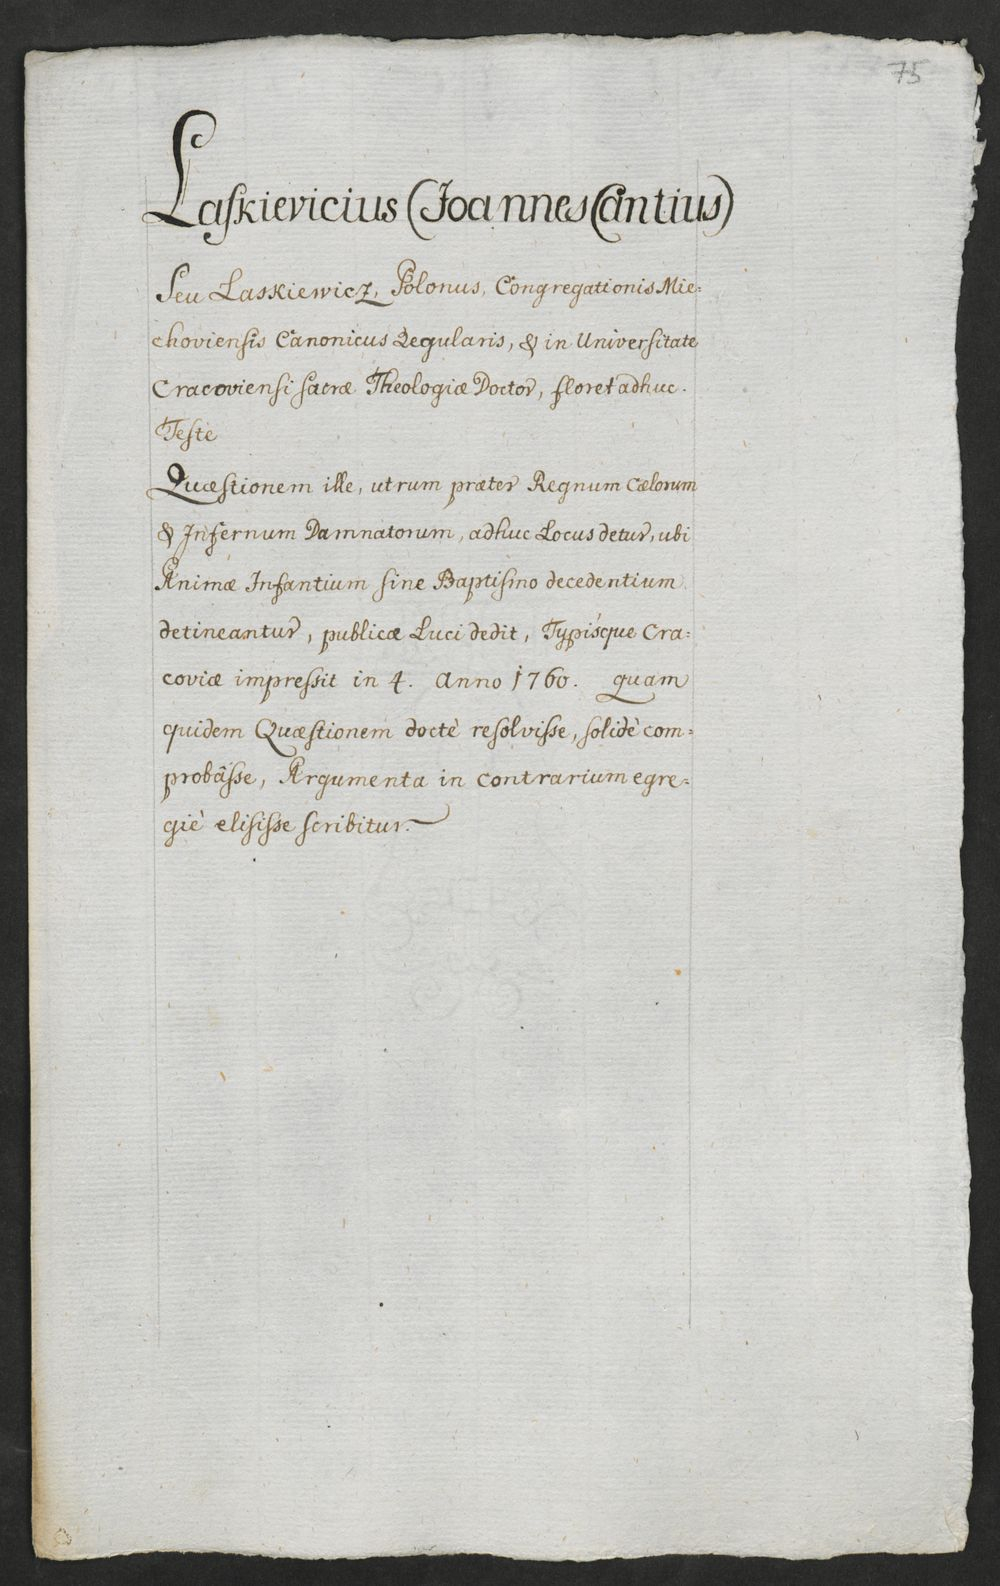 75
Laſkievicius (Joannes Cantius)
Seu Laskiewicz, Polonus, Congregationis Mie=
choviensis Canonicus Regularis, & in Universitate
Cracoviensi sacræ Theologiæ Doctor, floret adhuc.
Teste
Quæstionem ille, utrum præter Regnum Cælorum
& Infernum Damnatorum, adhuc Locus detur, ubi
Animæ Infantium sine Baptismo decedentium
detineantur, publicæ Luci dedit, Typísque Cra=
coviæ impressit in 4. Anno 1760. quam
quidem Quæstionem doctè resolvisse, solidè com=
probâsse, Argumenta in contrarium egre=
giè elisisse scribitur.